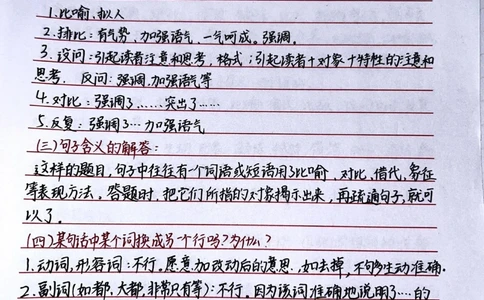 1.比喻、拟人
2.排比：有气势、加强语气、一气呵成、强调。
3.设问：引起读者注意和思考，格式；引起读者+对象+特性的注意和
思考． 反问：强调，加强语气等
4.对比：强调了......突出了......
5.反复：强调了...加强语气
(三)句子含义的解答：
这样的题目，句子中往往有一个词语或短语用了比喻、对比、借代、象征
等表现方法。答题时，把它们所指的对象揭示出来，再疏通句子，就可
以了。
(四)某句话中某个词换成另一个行吗？为什么？
1.动词，形容词：不行。原意加改动后的意思，如去掉，不够生动准确.
2.副词(如都，大都，非常只有等)：不行。因为该词准确地说明了....的